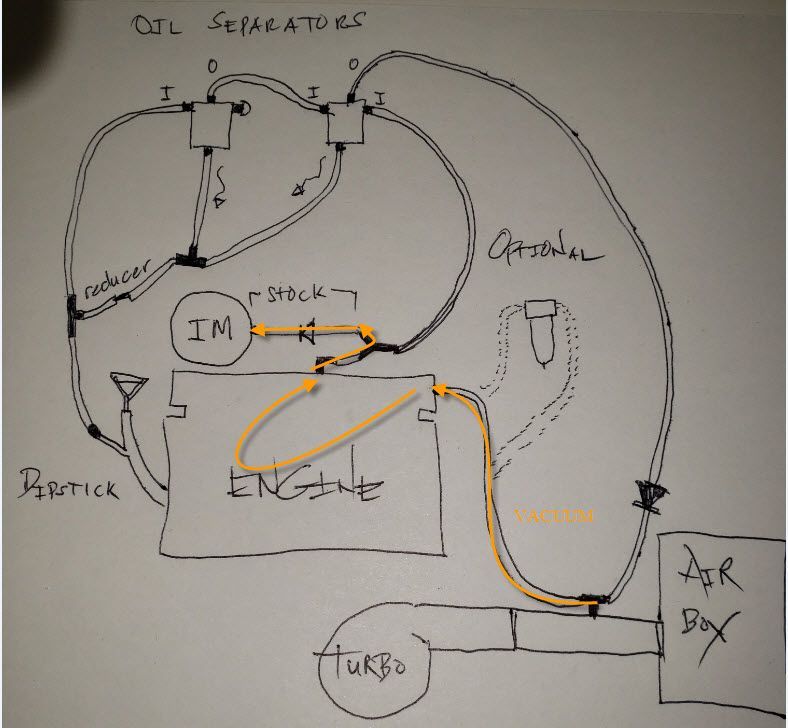 OIL SEPARATORS
O
O
I
I
I
reducer
STOCK
OPTIONAL
IM
DIPSTICK
ENGINE
VACUUM
AIR
BOX
TURBO